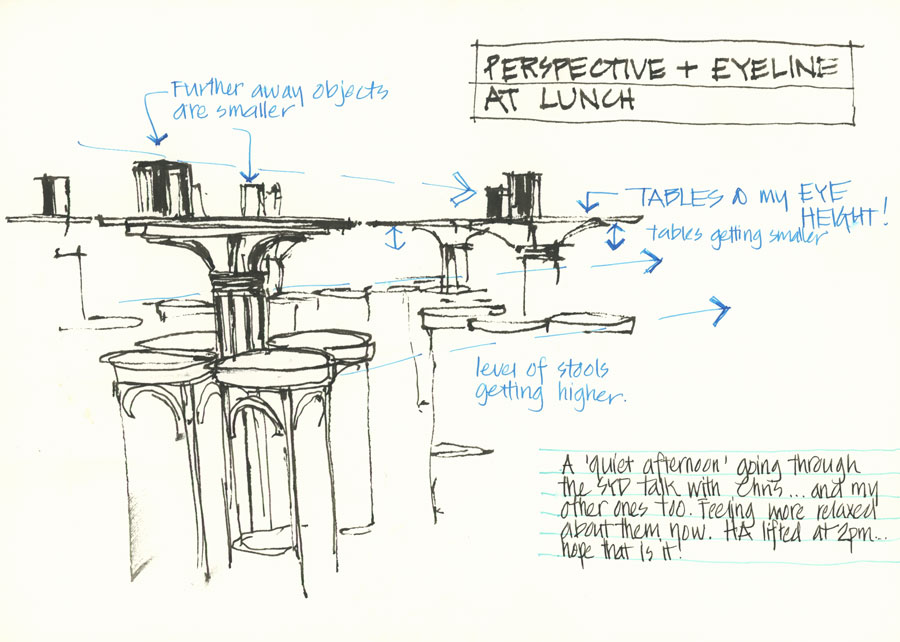 PERSPECTIVE + EYELINE
AT LUNCH
Further away objects
are smaller
TABLES @ my EYE
HEIGHT!
tables getting smaller
level of stools
getting higher.
A 'quiet afternoon' going through
the SYD talk with Chris... and my
other ones too. Feeling more relaxed
about them now. HA lifted at 2pm...
hope that is it!